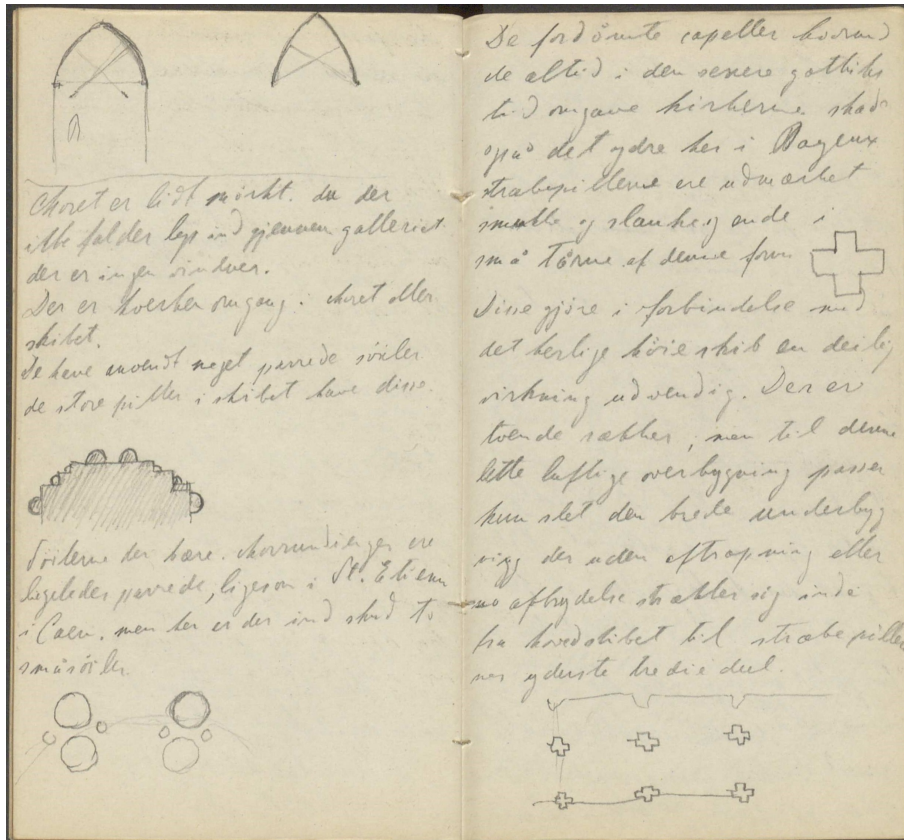 Choret er lidt mørkt. da der
ikke falder lys ind gjennem galleriet
der er ingen vinduer.
Der er hverken omgang i choret eller
skibet.
De have anvendt meget parrede söiler
de store piller i skibet have disse.
Söilerne der bære chorrundingen ere
ligeledes parrede, ligesom i St. Etienne
i Caen. men her er der ind skud to
småsöiler.
De fordömte capeller hvormed
de altid i den senere gothiske
tid omgave kirkerne skader
også det ydre her i Bayeux
stræbepillerne ere udmærket
smukke og slanke og ende i
små tårne af denne form
Disse gjöre i forbindelse med
det herlige höie skib en deilig
virkning udvendig. Der er
tvende rækker, men til denne
lette luftige overbygning passer
kun slet den brede underbyg
ning der uden aftrapning eller
afbrydelse strækker sig inde
fra hovedskibet til stræbepiller
nes yderste trediedeel.